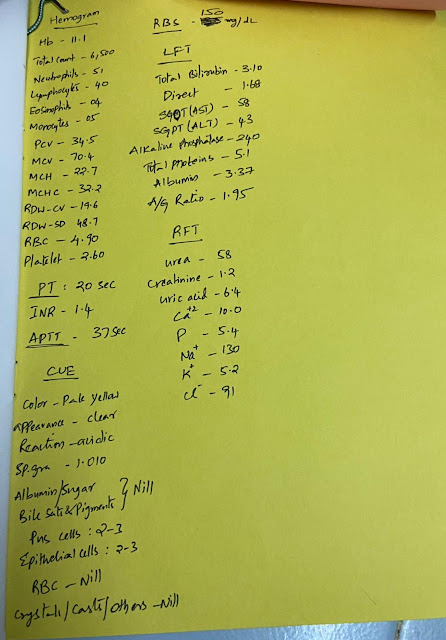 Hemogram
Hb - 11.1
Total count - 6,500
Neutrophils - 51
Lymphocytes - 40
Eosinophils - 04
Monocytes - 05
PCV - 34.5
MCV - 70.4
MCH - 22.7
MCHC - 32.2
RDW-CV - 19.6
RDW-SD 48.7
RBC - 4.90
Platelet - 2.60
PT : 20 sec
INR - 1.4
APTT - 37 sec
CUE
Color - Pale yellow
Appearance - clear
Reaction - acidic
Sp.gra - 1.010
Albumin/Sugar
Bile Salts & Pigments } Nill
Pus cells : 2-3
Epithelial cells : 2-3
RBC - Nill
Crystals/Casts/others - Nill
RBS - 150 mg/dL
LFT
Total Bilirubin - 3.10
Direct - 1.68
SGOT (AST) - 58
SGPT (ALT) - 43
Alkaline Phosphatase - 240
Total proteins - 5.1
Albumin - 3.37
A/G Ratio - 1.95
RFT
urea - 58
Creatinine - 1.2
uric acid - 6.4
Ca+2 - 10.0
P - 5.4
Na+ - 130
K+ - 5.2
Cl- - 91